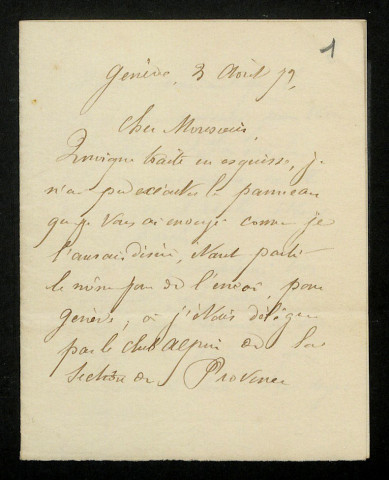 1
Genève, 3 Août 79
Cher Monsieur,
Quoique traité en esquisse, je
n'ai pu exécuter le panneau
que je vous ai envoyé comme je
l'aurai désiré, étant parti
le même jour de l'envoi, pour
Genève, où j'étais délégué
par le club alpin de la
Section de Provence